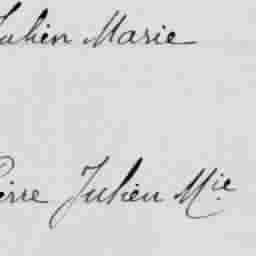 Julien Marie
Pierre Julien Mie